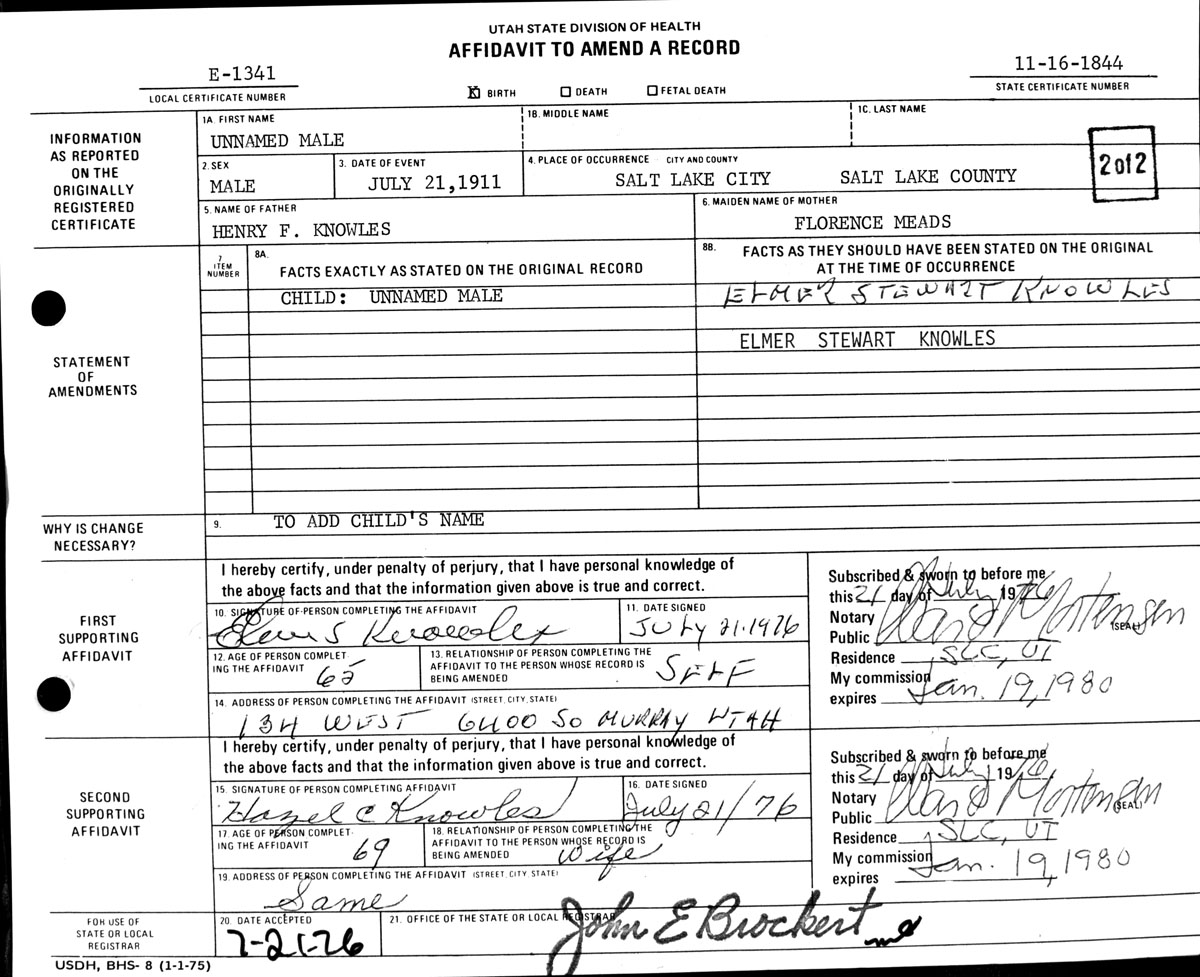 UTAH STATE DIVISION OF HEALTH
AFFIDAVIT TO AMEND A RECORD
E-1341
LOCAL CERTIFICATE NUMBER
BIRTH DEATH FETAL DEATH
11-16-1844
STATE CERTIFICATE NUMBER
INFORMATION
AS REPORTED
ON THE
ORIGINALLY
REGISTERED
CERTIFICATE
1A. FIRST NAME 1B. MIDDLE NAME 1C. LAST NAME
UNNAMED MALE
2. SEX 3. DATE OF EVENT 4. PLACE OF OCCURRENCE CITY AND COUNTY
MALE JULY 21,1911 SALT LAKE CITY SALT LAKE COUNTY
2 of 2
5. NAME OF FATHER 6. MAIDEN NAME OF MOTHER
HENRY F. KNOWLES FLORENCE MEADS
STATEMENT
OF
AMENDMENTS
7
ITEM
NUMBER
8A.
FACTS EXACTLY AS STATED ON THE ORIGINAL RECORD
8B. FACTS AS THEY SHOULD HAVE BEEN STATED ON THE ORIGINAL
AT THE TIME OF OCCURRENCE
CHILD: UNNAMED MALE ELMER STEWART KNOWLES
ELMER STEWART KNOWLES
WHY IS CHANGE
NECESSARY?
9. TO ADD CHILD'S NAME
FIRST
SUPPORTING
AFFIDAVIT
I hereby certify, under penalty of perjury, that I have personal knowledge of
the above facts and that the information given above is true and correct.
10. SIGNATURE OF PERSON COMPLETING THE AFFIDAVIT 11. DATE SIGNED
Elmer S Knowles JULY 21.1976
12. AGE OF PERSON COMPLET-
ING THE AFFIDAVIT 65
13. RELATIONSHIP OF PERSON COMPLETING THE
AFFIDAVIT TO THE PERSON WHOSE RECORD IS
BEING AMENDED SELF
14. ADDRESS OF PERSON COMPLETING THE AFFIDAVIT (STREET, CITY, STATE)
134 WEST 6400 SO MURRAY UTAH
Subscribed & sworn to before me
this 21 day of July 1976
Notary
Public Mortensen (SEAL)
Residence SLC, UT
My commission
expires Jan. 19, 1980
SECOND
SUPPORTING
AFFIDAVIT
I hereby certify, under penalty of perjury, that I have personal knowledge of
the above facts and that the information given above is true and correct.
15. SIGNATURE OF PERSON COMPLETING AFFIDAVIT 16. DATE SIGNED
Hazel C Knowles July 21/76
17. AGE OF PERSON COMPLET-
ING THE AFFIDAVIT 69
18. RELATIONSHIP OF PERSON COMPLETING THE
AFFIDAVIT TO THE PERSON WHOSE RECORD IS
BEING AMENDED Wife
19. ADDRESS OF PERSON COMPLETING THE AFFIDAVIT (STREET, CITY, STATE)
Same
Subscribed & sworn to before me
this 21 day of July 1976
Notary
Public Mortensen (SEAL)
Residence SLC, UT
My commission
expires Jan. 19, 1980
FOR USE OF
STATE OR LOCAL
REGISTRAR
20. DATE ACCEPTED 21. OFFICE OF THE STATE OR LOCAL REGISTRAR
7-21-76 John E Brockert
USDH, BHS- 8 (1-1-75)